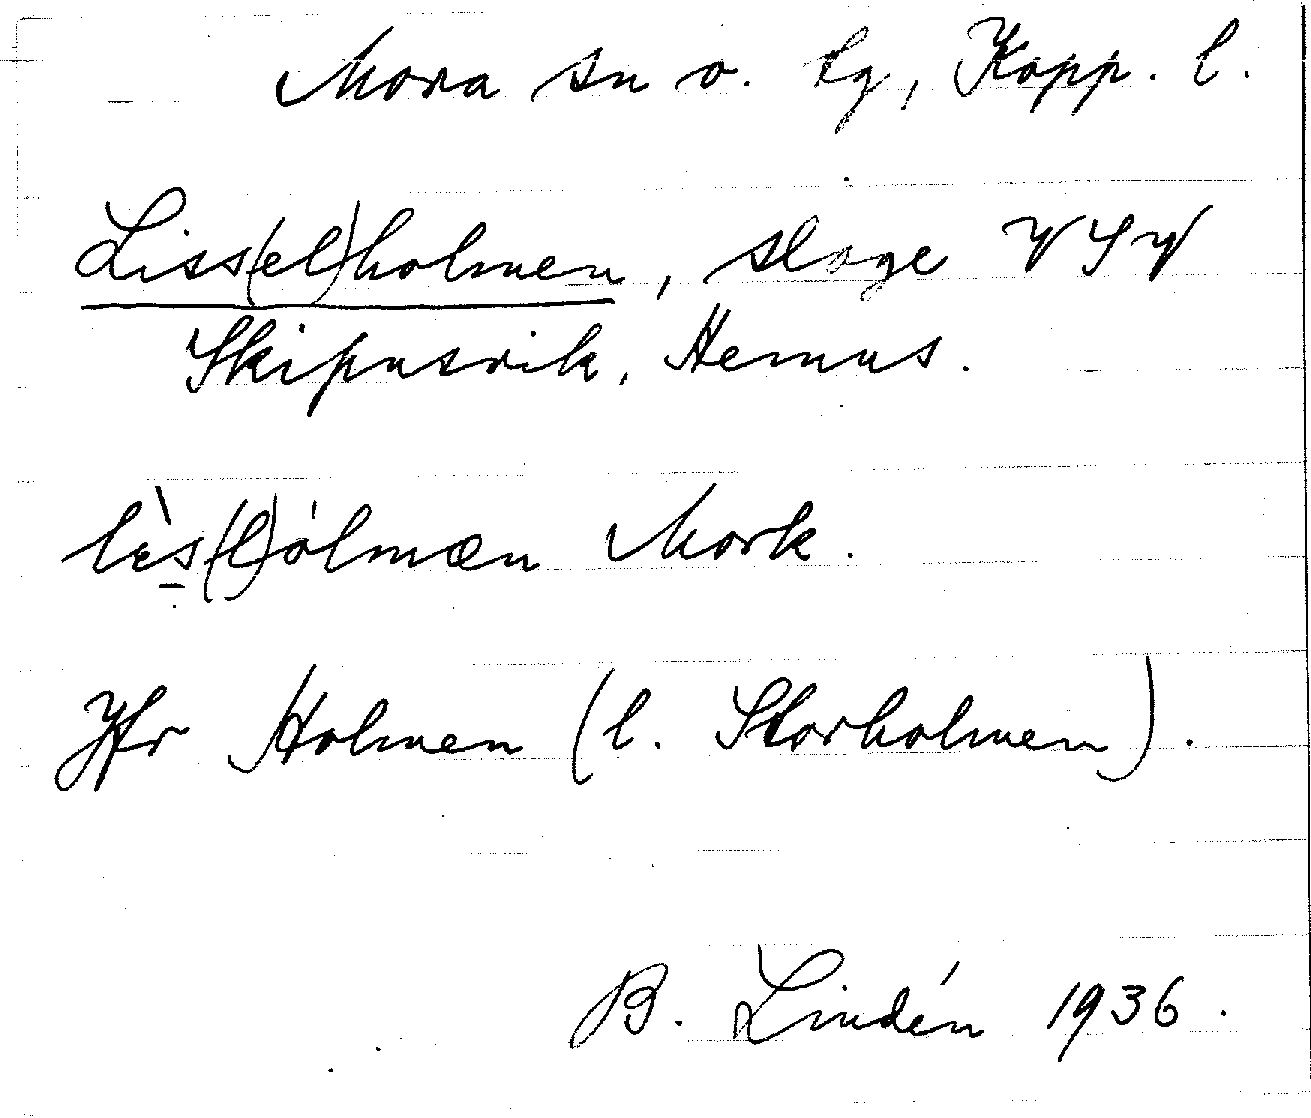 Mora sn o. tg, Kopp. l.
Liss(el)holmen, sloge VSV
Skipnsvik, Hemus.
lès(l)ólmæn Mork.
Jfr Holmen (l. Storholmen).
B. Lindén 1936.